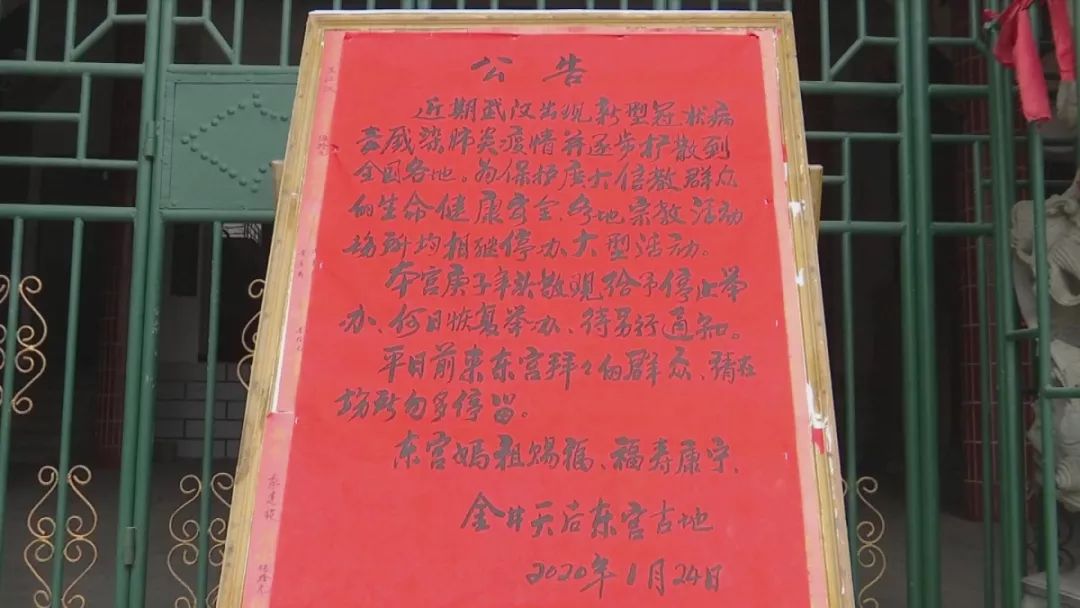 公告
近期武汉出现新型冠状病
毒感染肺炎疫情并逐步扩散到
全国各地。为保护广大信教群众
的生命健康安全、各地宗教活动
场所均相继停办大型活动。
本宫庚子年头散观给予停止举
办、何日恢复举办、待另行通知。
平日前来东宫拜々的群众、请在
场所勿多停留。
东宫妈祖赐福、福寿康宁、
金井天后东宫古地
2020年1月24日